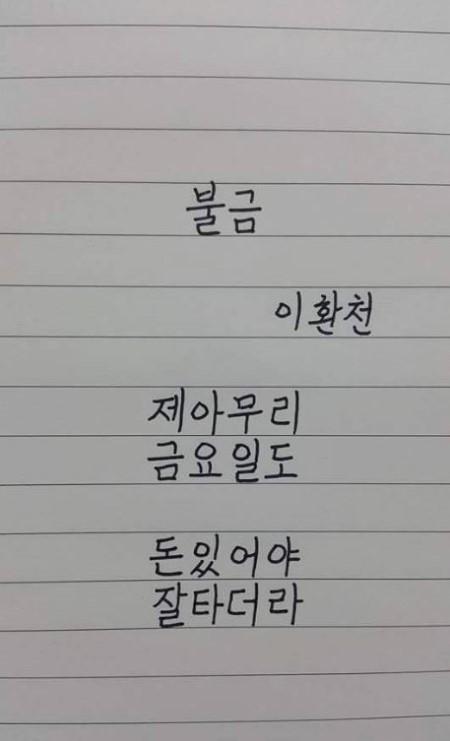 불금
이환천
제아무리
금요일도
돈있어야
잘타더라